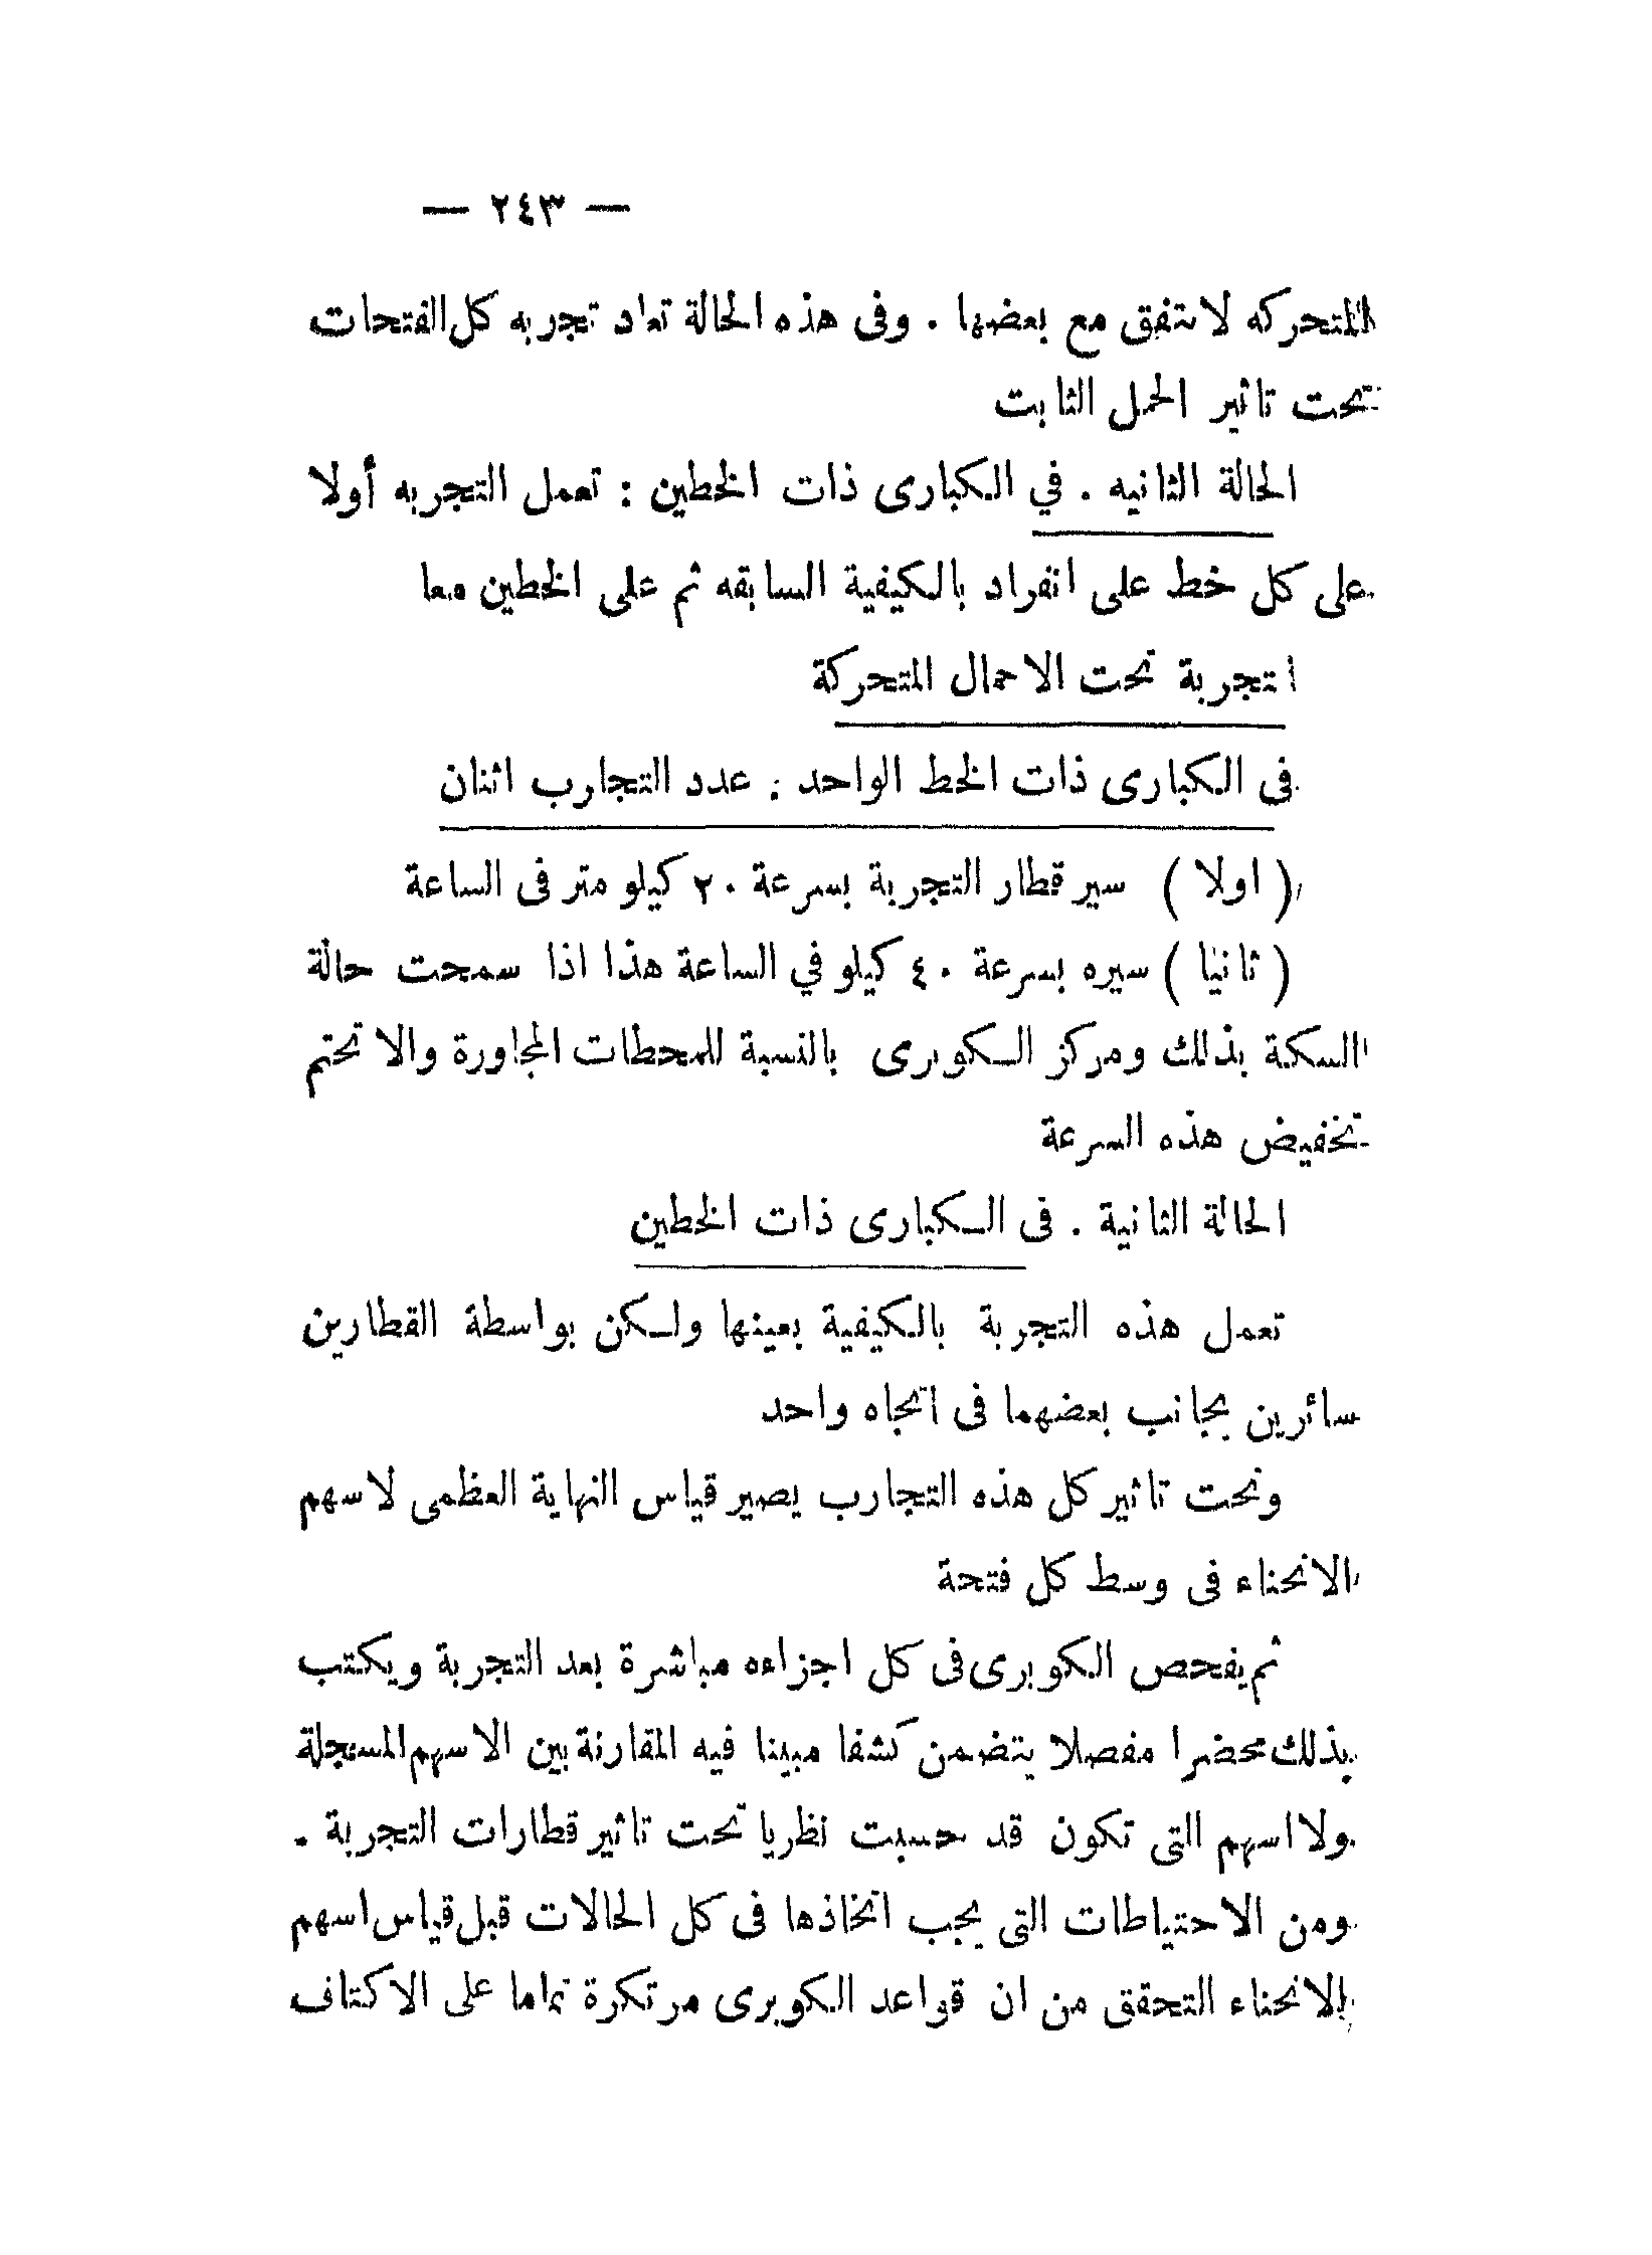 — ٢٤٣ —
المتحركه لا تتفق مع بعضها . وفى هذه الحالة تعاد تجربه كل الفتحات
تحت تاثير الحمل الثابت
الحالة الثانيه . في الكبارى ذات الخطين : تعمل التجربه أولا
على كل خط على انفراد بالكيفية السابقه ثم على الخطين معا
التجربة تحت الاحمال المتحركة
فى الكبارى ذات الخط الواحد : عدد التجارب اثنان
( اولا ) سير قطار التجربة بسرعة ٢٠ كيلو متر فى الساعة
( ثانيا ) سيره بسرعة ٤٠ كيلو في الساعة هذا اذا سمحت حالة
السكة بذلك ومركز الكوبرى بالنسبة للمحطات المجاورة والا تحتم
تخفيض هذه السرعة
الحالة الثانية . فى الكبارى ذات الخطين
تعمل هذه التجربة بالكيفية بعينها ولكن بواسطة القطارين
سائرين بجانب بعضهما فى اتجاه واحد
وتحت تاثير كل هذه التجارب يصير قياس النهاية العظمى لاسهم
الانحناء فى وسط كل فتحة
ثم يفحص الكوبرى فى كل اجزاءه مباشرة بعد التجربة ويكتب
بذلك محضرا مفصلا يتضمن كشفا مبينا فيه المقارنة بين الاسهم المسجلة
ولااسهم التى تكون قد حسبت نظريا تحت تاثير قطارات التجربة .
ومن الاحتياطات التى يجب اتخاذها فى كل الحالات قبل قياس اسهم
الانحناء التحقق من ان قواعد الكوبرى مرتكرة تماما على الاكتاف